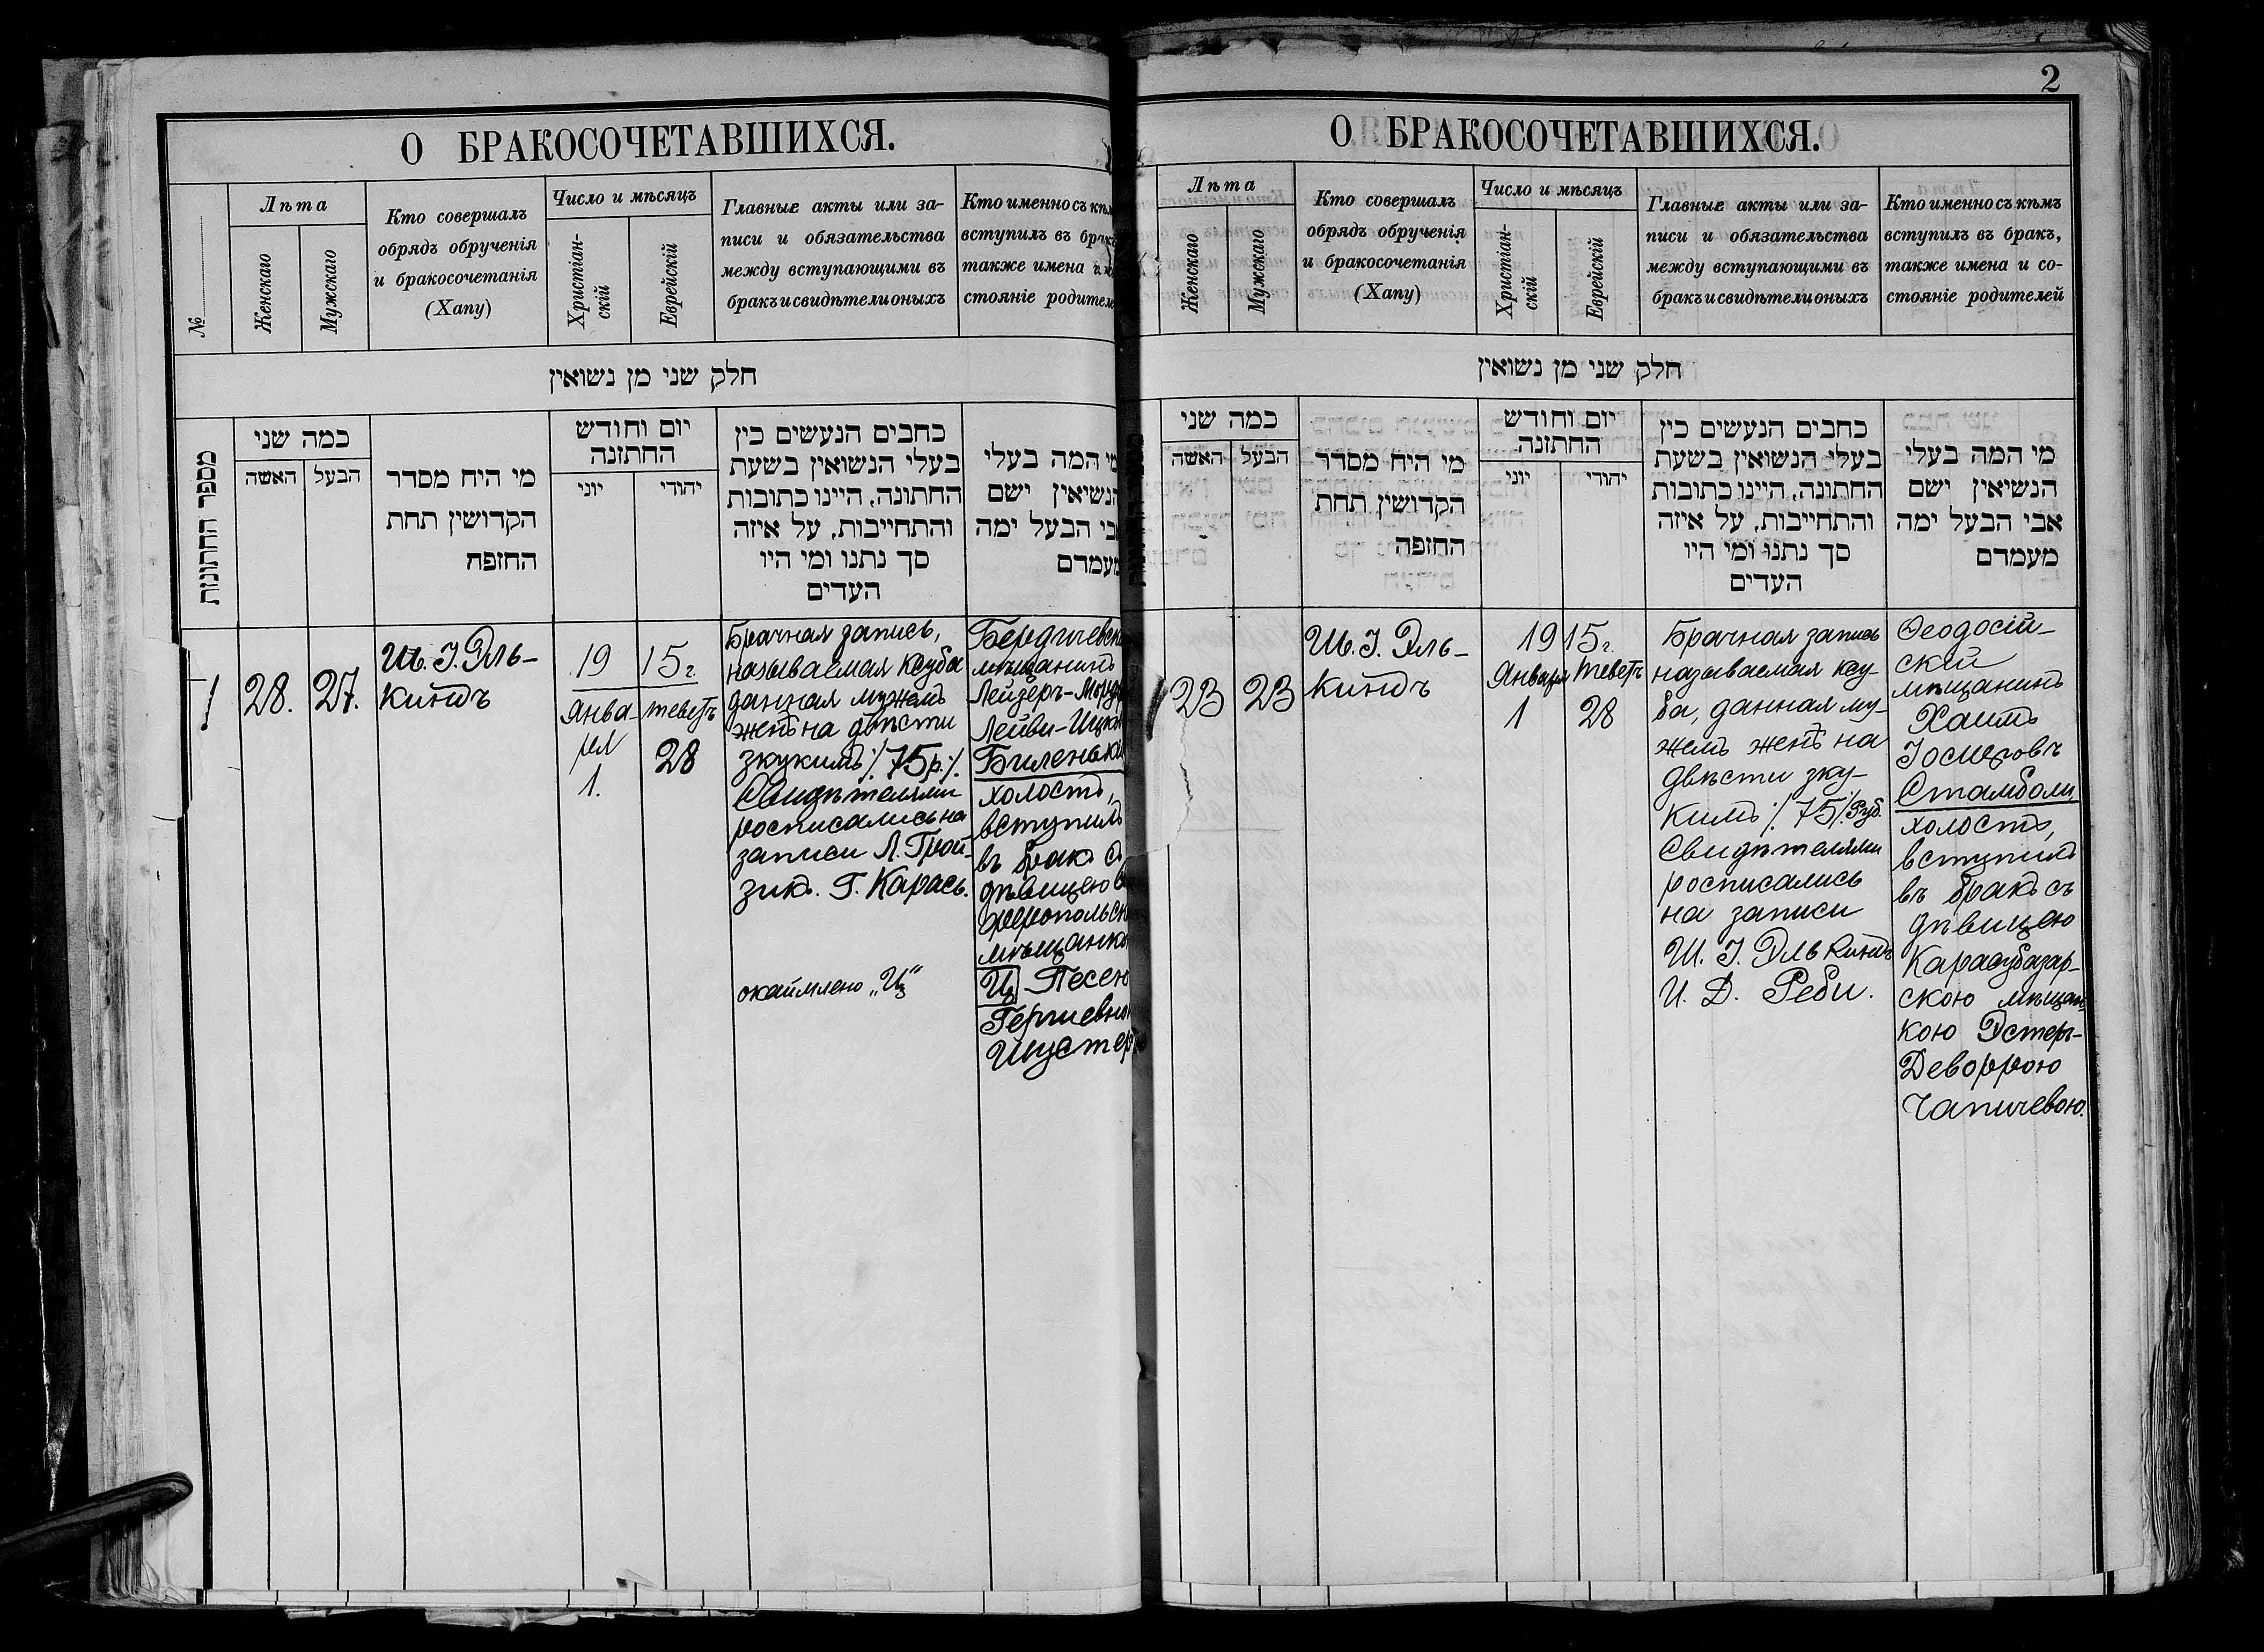 О БРАКОСОЧЕТАВШИХСЯ.
№
Лѣта
Женскаго
Мужскаго
Кто совершалъ
обрядъ обрученія
и бракосочетанія
(Хапу)
Число и мѣсяцъ
Христіан-
скій
Еврейскій
Главные акты или за-
писи и обязательства
между вступающими въ
бракъ и свидѣтели оныхъ
Кто именно съ
вступилъ въ
также имена и
стояніе
חלק שני מן נשואין
מספר החתונות
כמה שני
האשה
הבעל
מי היח מסדר
הקדושין תחת
החזפח
יום וחודש
החתזנה
יוני
יהודי
כחבים הנעשים כין
בעלי הנשואין בשעת
החתונה, היינו כתובות
והתחייבות, על איזה
סך נתנו ומי היו
העדים
המה בעלי
הנשיאין ישם
הבעל ימה
מעמדם
1
28.
27.
Ш. І. Эль-
киндъ
19 15 г.
Янва-
ря
1.
теветъ
28
Брачная запись,
называемая ксуба
данная мужемъ
женѣ на двѣсти
зкукимъ ⁒ 75 р. ⁒
Свидѣтелями
росписались на
записи Л. Грой-
зикъ. Г. Карась.
окаймлено „Ц"
мѣщанинъ
Лейзеръ-
Лейви-
холостъ,
вступилъ
въ бракъ съ
дѣвицею
Ц Песею
2
О БРАКОСОЧЕТАВШИХСЯ.
Лѣта
Женскаго
Мужскаго
Кто совершалъ
обрядъ обрученія
и бракосочетанія
(Хапу)
Число и мѣсяцъ
Христіан-
скій
Еврейскій
Главные акты или за-
писи и обязательства
между вступающими въ
бракъ и свидѣтели оныхъ
Кто именно съ кѣмъ
вступилъ въ бракъ,
также имена и со-
стояніе родителей
חלק שני מן נשואין
כמה שני
האשה
הבעל
מי היח מסדר
הקדושין תחת
החזפה
יום וחודש
החתזנה
יוני
יהודי
כחבים הנעשים כין
בעלי הנשואין בשעת
החתונה, היינו כתובות
והתחייבות, על איזה
סך נתנו ומי היו
העדים
מי המה בעלי
הנשיאין ישם
אבי הבעל ימה
מעמדם
23
23
Ш. І. Эль-
киндъ
1915 г.
Января
1
теветъ
28
Брачная запись
называемая ксу-
ба, данная му-
жемъ женѣ на
двѣсти зку-
кимъ ⁒ 75 ⁒ руб.
Свидѣтелями
росписались
на записи
Ш. І. Элькиндъ
И. Д. Реби.
Ѳеодосій-
скій
мѣщанинъ
Хаимъ
Іосифовъ
Стамболи,
холостъ,
вступилъ
въ бракъ съ
дѣвицею
Карасубазар-
скою мѣщан-
кою Эстеръ-
Деворрою
Чапичевою.